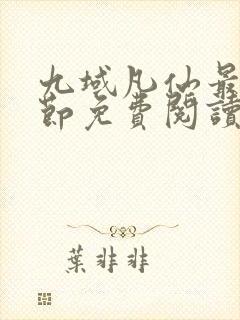 九域凡仙最
節免費閱讀
葉非非